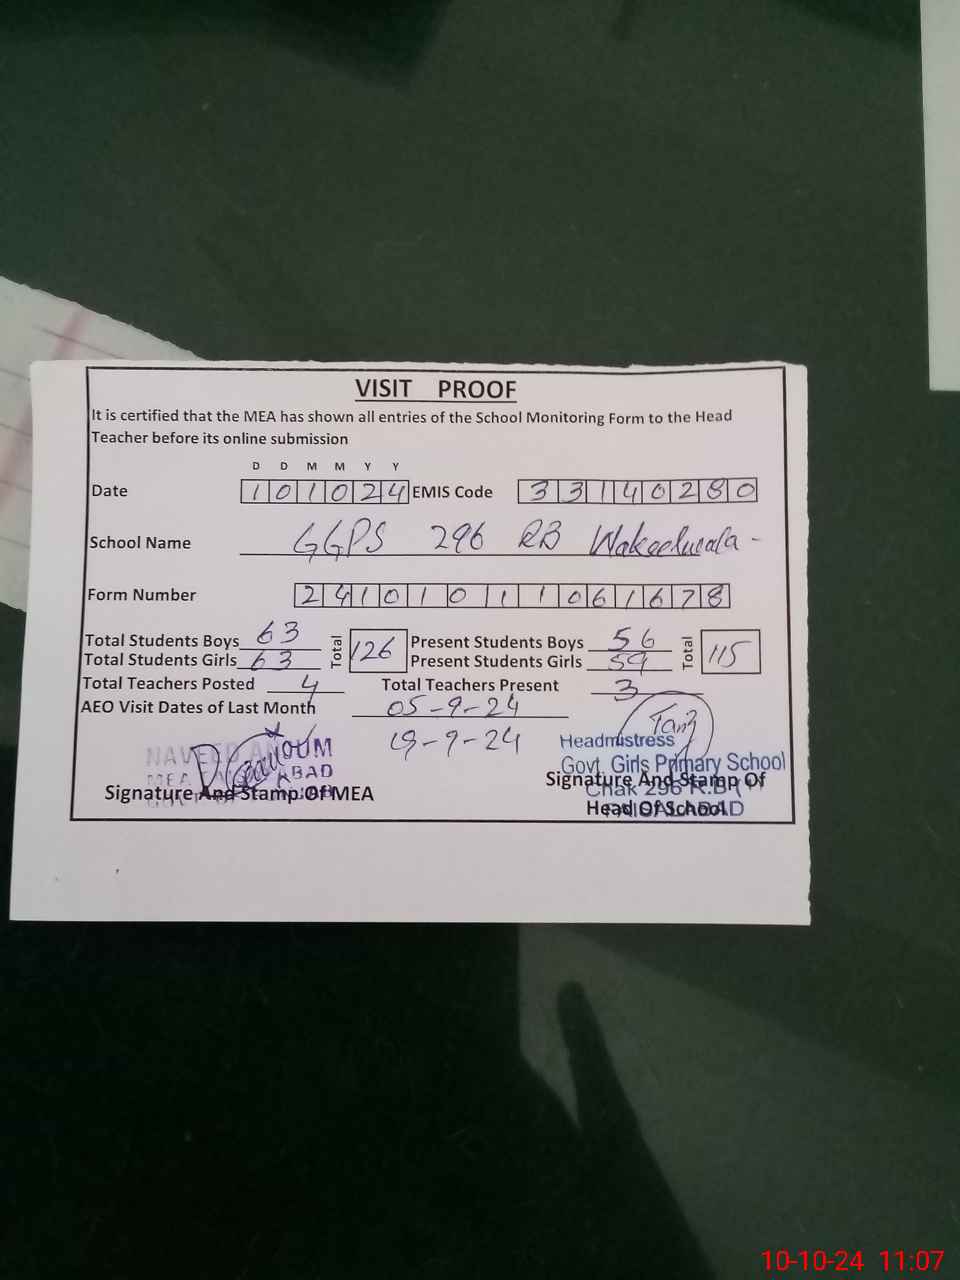 VISIT PROOF
It is certified that the MEA has shown all entries of the School Monitoring Form to the Head
Teacher before its online submission
D D M M Y Y
Date 101024 EMIS Code 33140280
School Name GGPS 296 RB Wakeelwala -
Form Number 241010111061678
Total Students Boys 63 Total 126 Present Students Boys 56 Total 115
Total Students Girls 63 Present Students Girls 59
Total Teachers Posted 4 Total Teachers Present 3
AEO Visit Dates of Last Month 05-9-24
19-9-24
NAVEED ANJUM
MEA
Signature And Stamp Of MEA
Headmistress
Govt. Girls Primary School
Signature And Stamp Of
Chak 296 R.B
Head Of School
FAISALABAD
10-10-24 11:07